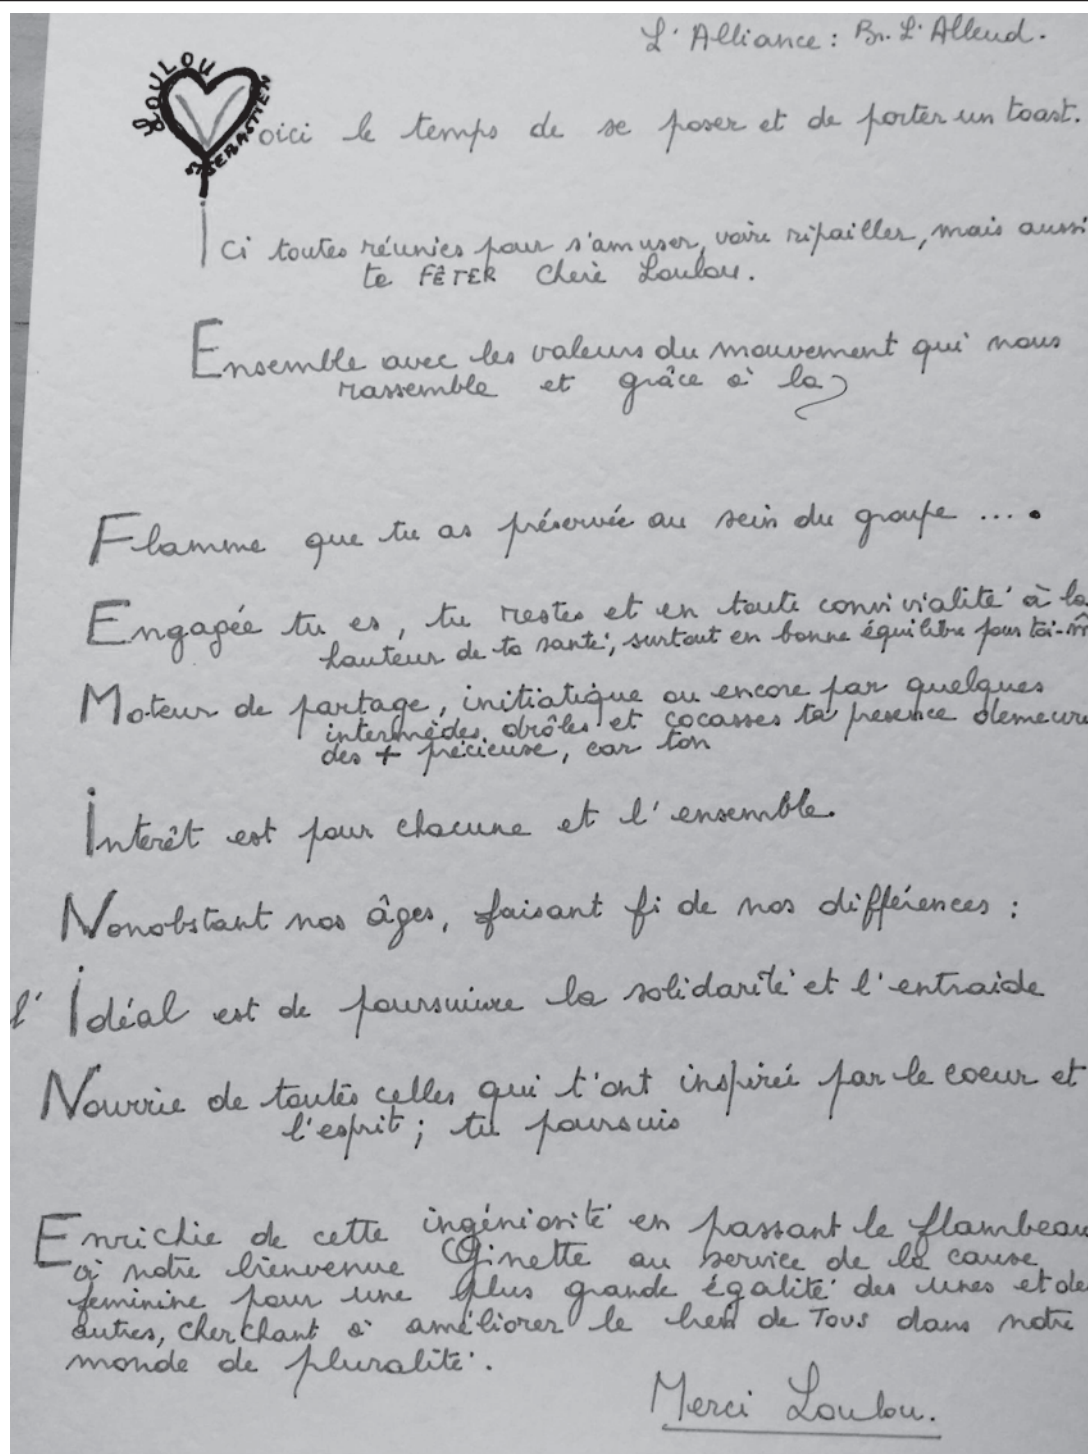 L'Alliance : Br. L'Alleud.
LOULOU
ST SEBASTIEN
Voici le temps de se poser et de porter un toast.
Ici toutes réunies pour s'amuser, voire ripailler, mais aussi
te FÊTER Chère Loulou.
Ensemble avec les valeurs du mouvement qui nous
rassemble et grâce à la
Flamme que tu as préservée au sein du groupe ....
Engagée tu es, tu restes et en toute convivialité à la
hauteur de ta santé, surtout en bonne équilibre pour toi-m
Moteur de partage, initiatique ou encore par quelques
intermèdes drôles et cocasses ta présence demeure
des + précieuse, car ton
Intérêt est pour chacune et l'ensemble.
Nonobstant nos âges, faisant fi de nos différences :
l'Idéal est de poursuivre la solidarité et l'entraide
Nourrie de toutes celles qui t'ont inspirée par le coeur et
l'esprit ; tu poursuis
Enrichie de cette ingéniosité en passant le flambeau
à notre bienvenue Ginette au service de la cause
féminine pour une plus grande égalité des unes et de
autres, cherchant à améliorer le lien de Tous dans notre
monde de pluralité.
Merci Loulou.